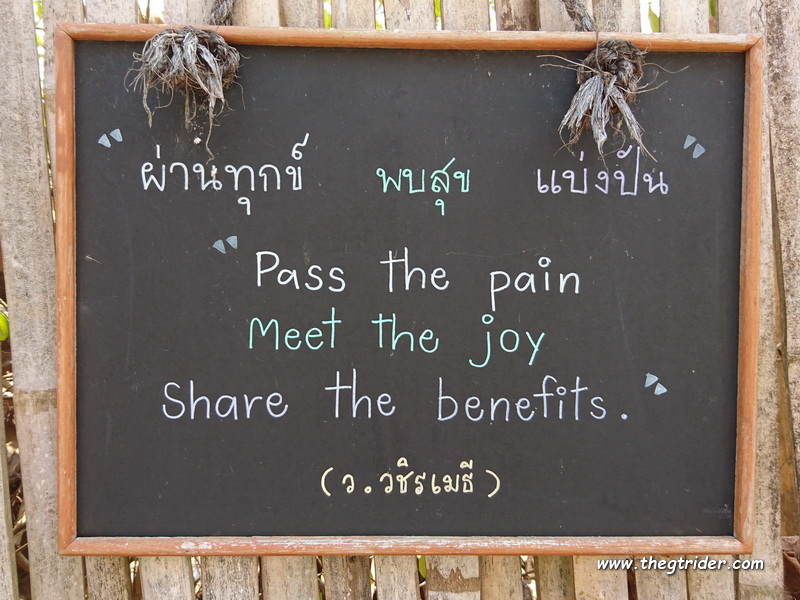 " ผ่านทุกข์ พบสุข แบ่งปัน "
" Pass the pain
Meet the joy
Share the benefits. "
(ว.วชิรเมธี)
www.thegtrider.com